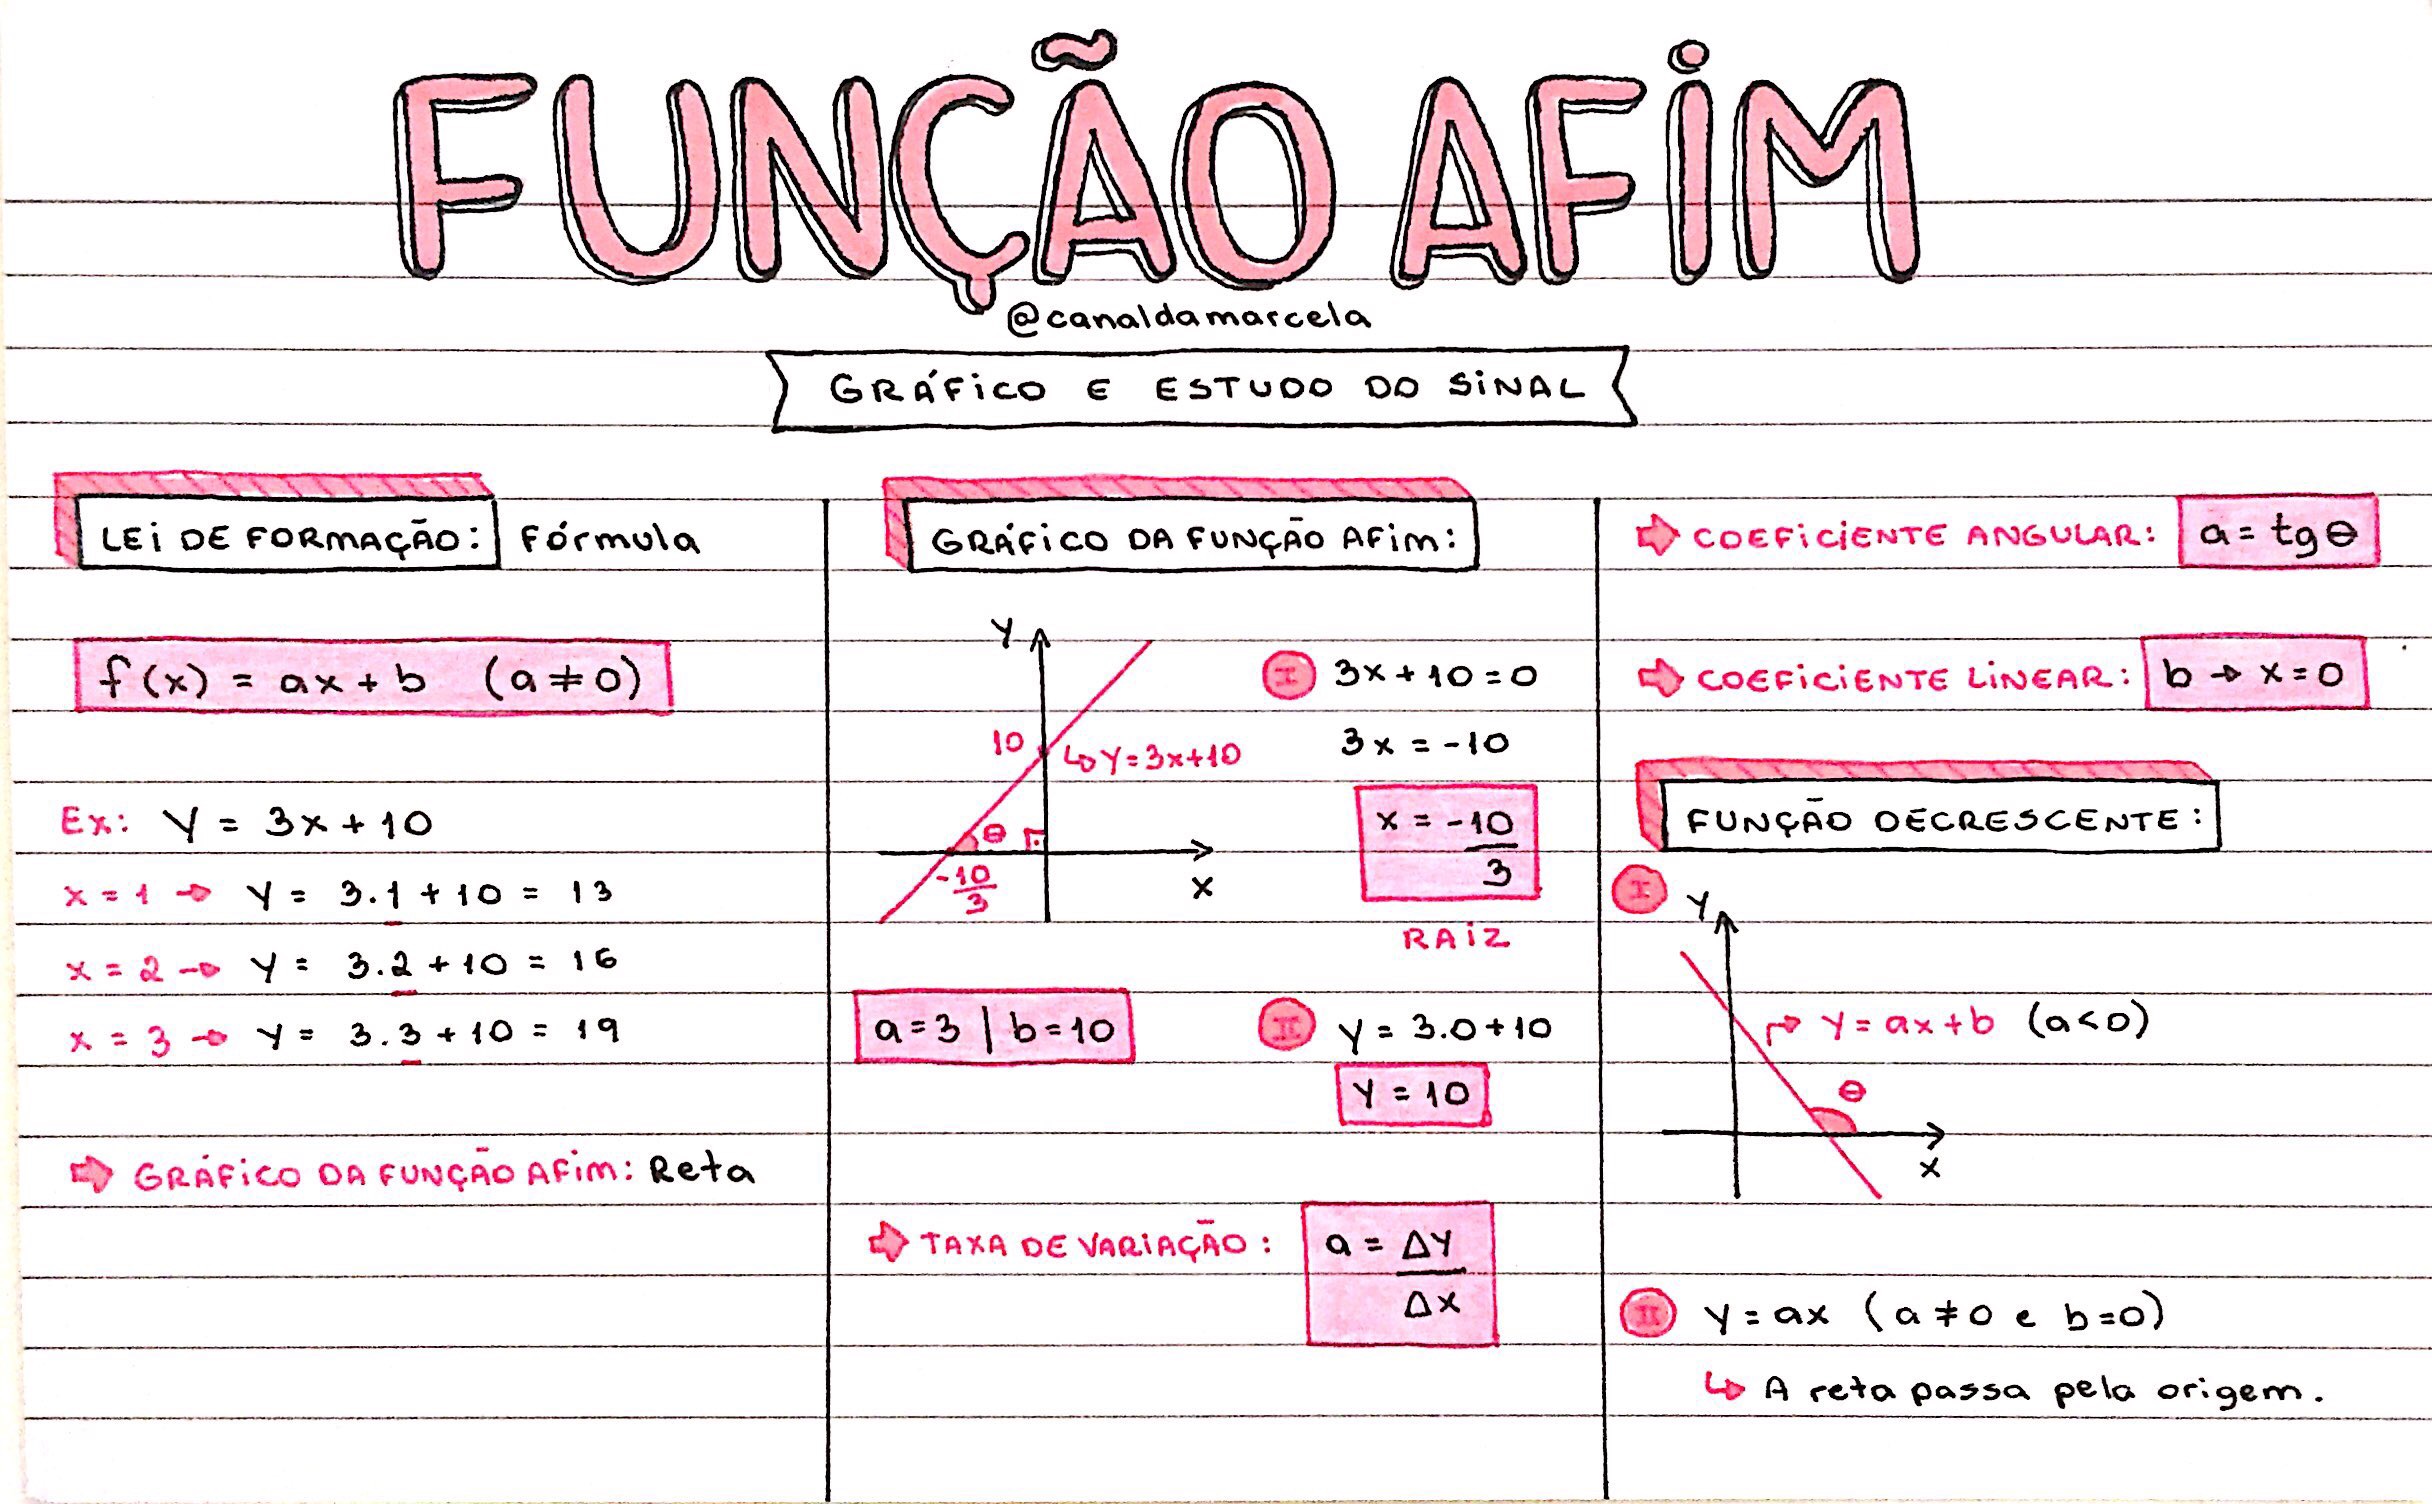 FUNÇÃO AFIM
@canaldamarcela
GRÁFICO E ESTUDO DO SINAL
LEI DE FORMAÇÃO: Fórmula
f(x) = ax + b (a ≠ 0)
Ex: Y = 3x + 10
x = 1 → Y = 3.1 + 10 = 13
x = 2 → Y = 3.2 + 10 = 16
x = 3 → Y = 3.3 + 10 = 19
GRÁFICO DA FUNÇÃO AFIM: Reta
GRÁFICO DA FUNÇÃO AFIM:
Y
10
↳ Y = 3x+10
θ
-10/3
X
I 3x + 10 = 0
3x = -10
x = -10/3
RAIZ
a = 3 | b = 10
II Y = 3.0 + 10
Y = 10
⇨ TAXA DE VARIAÇÃO: a = ΔY/Δx
⇨ COEFICIENTE ANGULAR: a = tg θ
⇨ COEFICIENTE LINEAR: b → x = 0
FUNÇÃO DECRESCENTE:
I
Y
Y = ax + b (a < 0)
θ
X
II Y = ax (a ≠ 0 e b = 0)
↳ A reta passa pela origem.